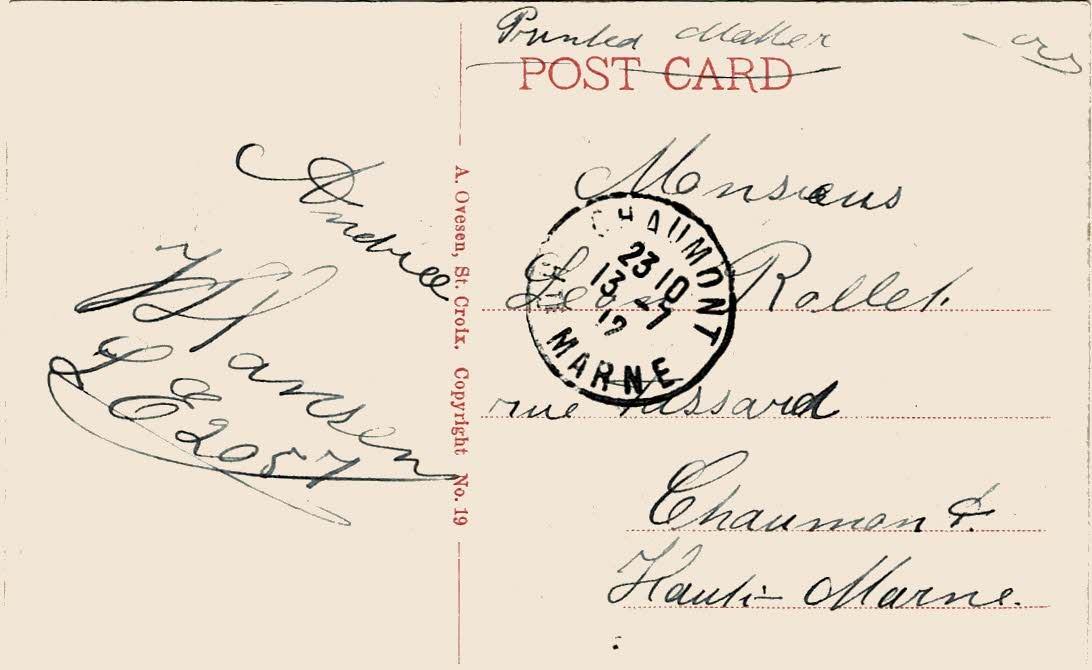 Printed Matter
POST CARD
A. Ovesen, St. Croix. Copyright No. 19
Andrée
Hansen
LE 2057
Monsieur
Léon Rollet
rue
Chaumont
Haute Marne.
CHAUMONT
23 10
13 -7
12
HTE MARNE